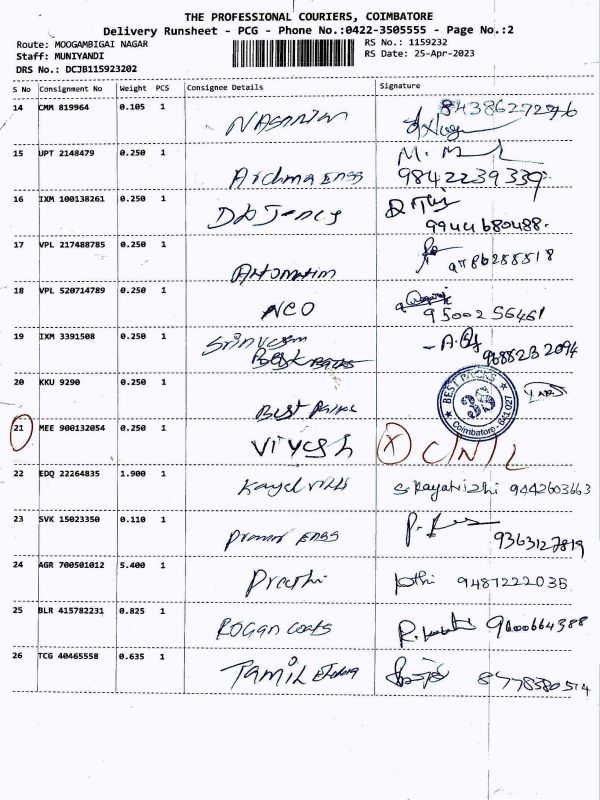 THE PROFESSIONAL COURIERS, COIMBATORE
Delivery Runsheet - PCG - Phone No.:0422-3505555 - Page No.:2
Route: MOOGAMBIGAI NAGAR RS No.: 1159232
Staff: MUNIYANDI RS Date: 25-Apr-2023
DRS No.: DCJB115923202
S No Consignment No Weight PCS Consignee Details Signature
14 CMM 819964 0.105 1 8438627276
15 UPT 2148479 0.250 1 Archma Engg M. 9842239339
16 IXM 100138261 0.250 1 9944680488.
17 VPL 217488785 0.250 1 9786288818
18 VPL 520714789 0.250 1 NCO 9500256461
19 IXM 3391508 0.250 1 9688232094
20 KKU 9290 0.250 1 Best BEST PACKS Coimbatore - 641 027
21 MEE 900132054 0.250 1 Viyesh X C/N/L
22 EDQ 22264835 1.900 1 9442603663
23 SVK 15023350 0.110 1 Engg 9363127819
24 AGR 700501012 5.400 1 Preethi 9487222035
25 BLR 415782231 0.825 1 ROGAN coats 9600664388
26 TCG 40465558 0.635 1 TAMIL 8778380514